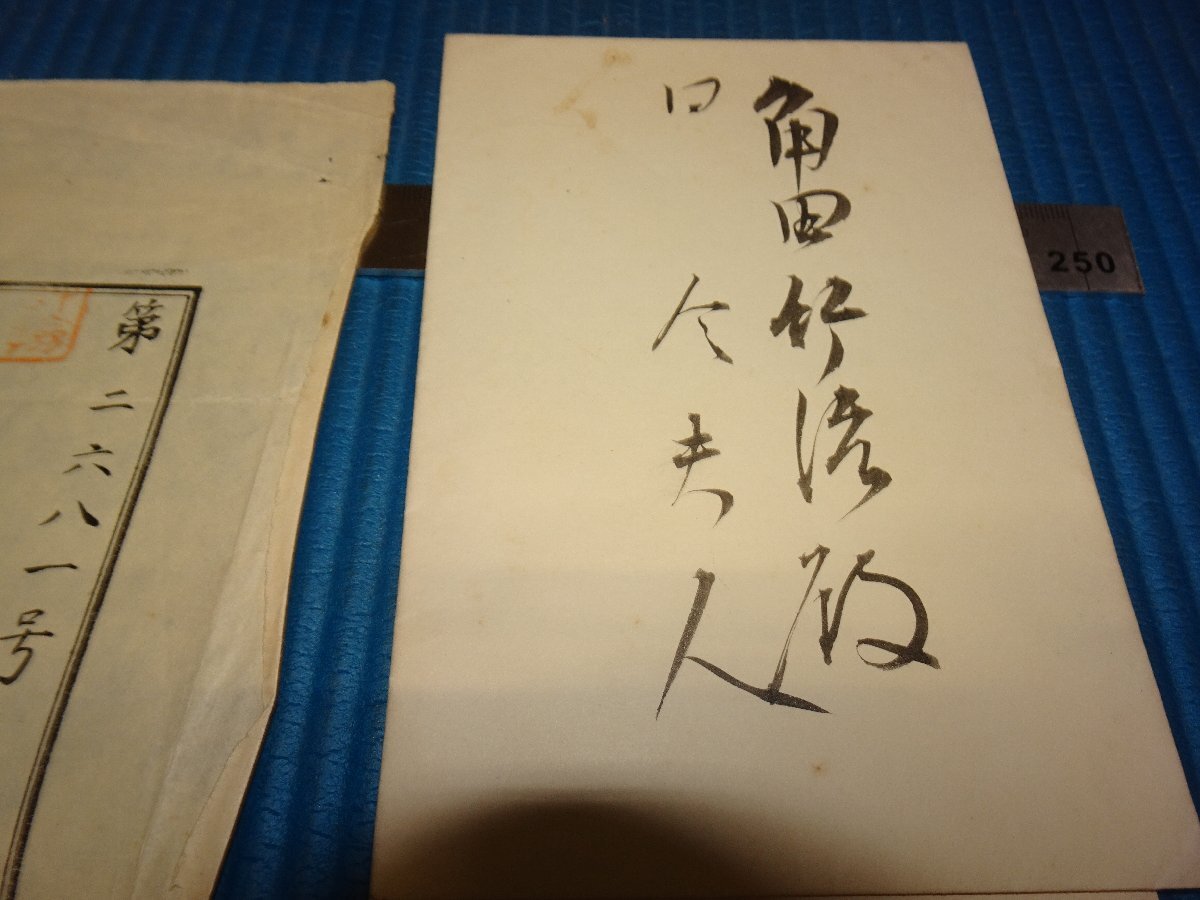 角田竹治殿
同令夫人
第二六八一号
250